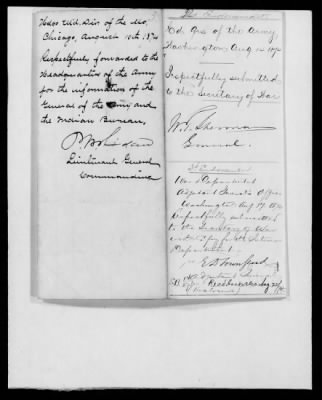 Hdqrs Mil. Div. of the Mo.
Chicago, August 10th, 1874
Respectfully forwarded to the
Headquarters of the Army
for the information of the
General of the Army and
the Indian Bureau,
P H Sheridan
Lieutenant General
Commanding
2d Endorsement
Hd. Qrs of the Army
Washington Aug 14 187
Respectfully submitted
to the Secretary of War
W. T. Sherman
General.
3d Endorsement
War Department
Adjutant General's Office
Washington Aug 17 1874
Respectfully submitted
to the Secretary of War
with copy for the Interior
Department.
E D Townsend
Adjutant General